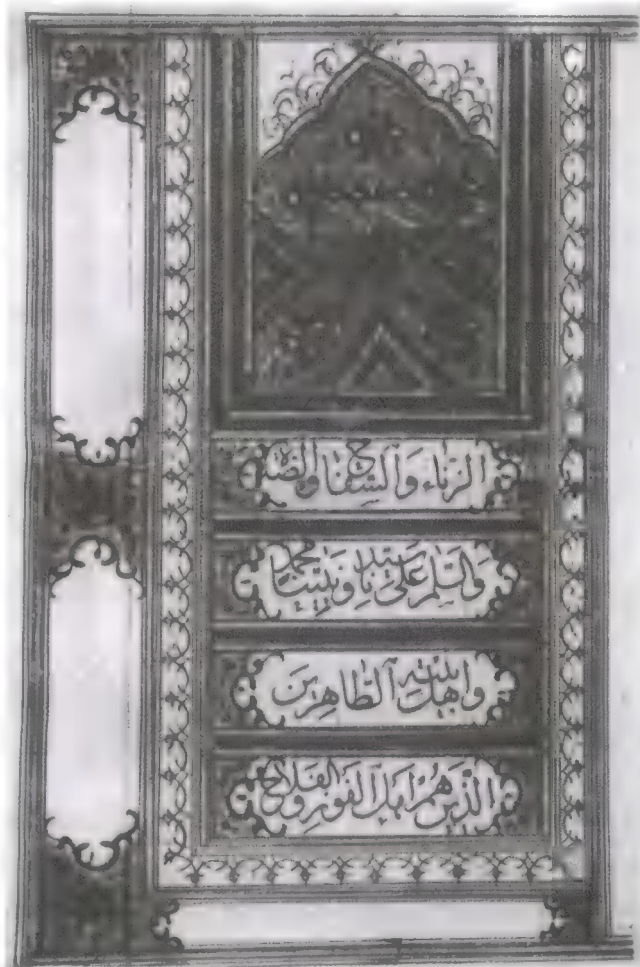 الزناء والسفاح والصلو
والسلم على سيدنا ونبينا محمد
واهل بيته الطاهرين
الذين هم اهل الفوز والفلاح